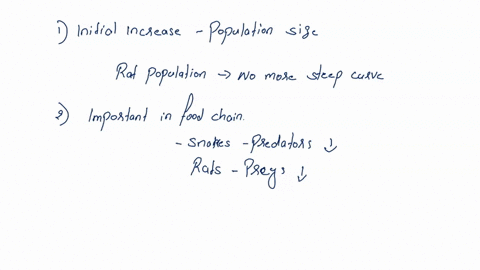 1) Initial Increase - Population size
Rat Population → No more steep curve
2) Important in food chain.
- Snakes - Predators ↓
Rats - Preys ↓